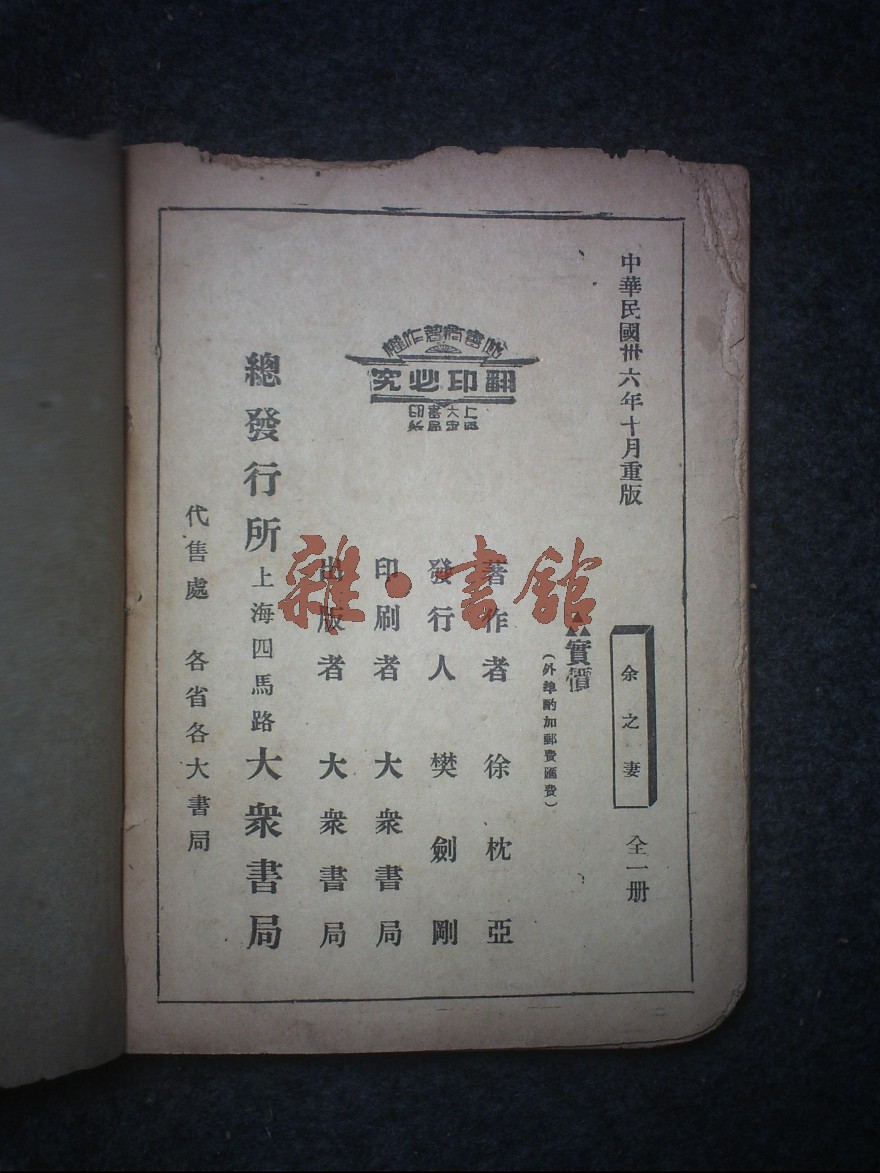 中華民國卅六年十月重版
余之妻
全一册
實價
（外埠酌加郵費匯費）
著作者 徐枕亞
發行人 樊劍剛
印刷者 大衆書局
出版者 大衆書局
此書有著作權
翻印必究
上海
大衆
書局
印
總發行所 上海四馬路 大衆書局
代售處 各省各大書局
雜·書館